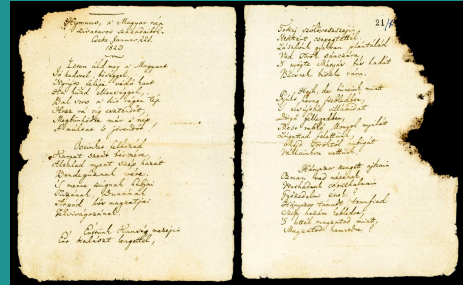 Hymnus, a' Magyar nép
zivataros századaiból.
Cseke, Januar. 22d.
1823
O Isten áldd meg a' Magyart
Jó kedvvel, bőséggel,
Nyújts feléje védő kart
Ha küzd ellenséggel;
Bal sors a' kit régen tép
Hozz rá víg esztendőt,
Megbünhődte már e' nép
A' multat 's jövendőt!
Őseinket felhozád
Kárpát szent bérczére,
Általad nyert szép hazát
Bendegúznak vére.
'S merre zúgnak habjai
Tiszának, Dunának,
Árpád hős magzatjai
Felvirágozának.
Értünk Kunság mezein
Ért kalászt lengettél,
21/
Tokaj szőlővesszein
Nektárt csepegtettél.
Zászlónk gyakran plántálád
Vad Török sánczára,
'S nyögte Mátyás bús hadát
Bécsnek büszke vára.
Hajh, de bűneink miatt
Gyúlt harag kebledben,
'S elsújtád villámidat
Dörgő fellegedben,
Most rabló Mongol nyilát
Zúgattad felettünk,
Majd Töröktől rabigát
Vállainkra vettünk.
Hányszor zengett ajkain
Ozman vad népének
Vert hadunk csonthalmain
Győzedelmi ének!
Hányszor támadt tenfiad
Szép hazám kebledre,
'S lettél magzatod miatt
Magzatod hamvvedre!